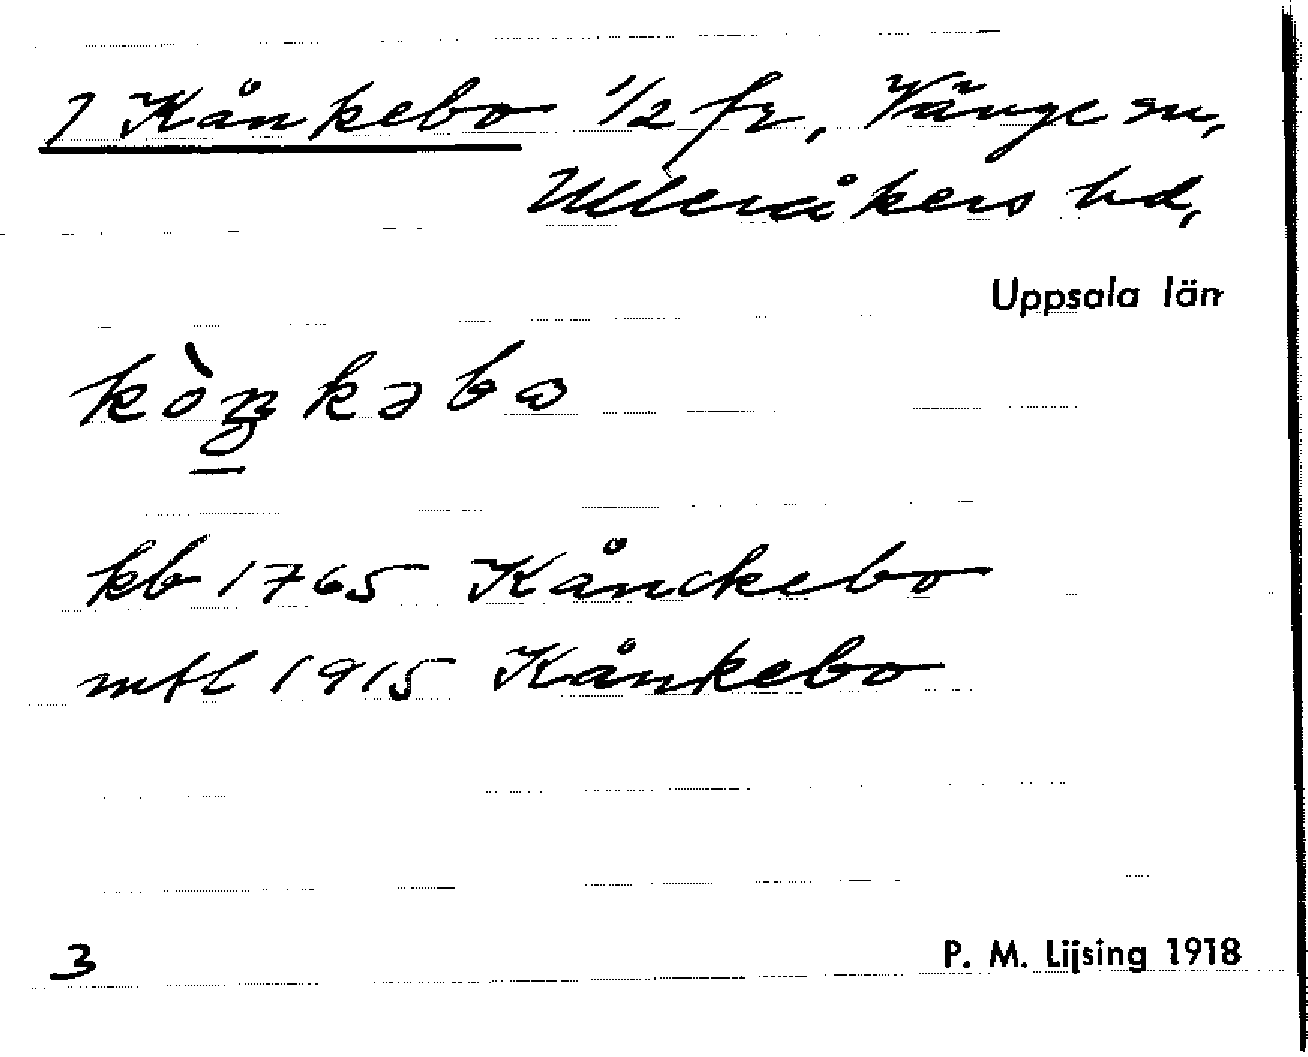 1 Kånkebo 1/2 fr, Vänge sn,
Ulleråkers hd,
Uppsala län
kò̱ŋkəbo
kb 1765 Kånckebo
mtl 1915 Kånkebo
3
P. M. Lijsing 1918